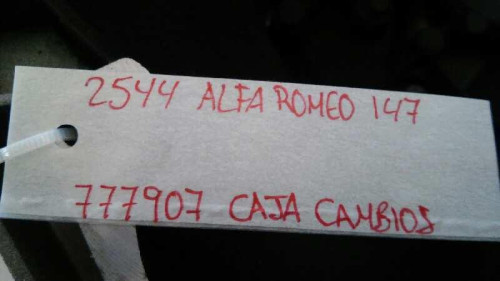 2544 ALFA ROMEO 147
777907 CAJA CAMBIOS